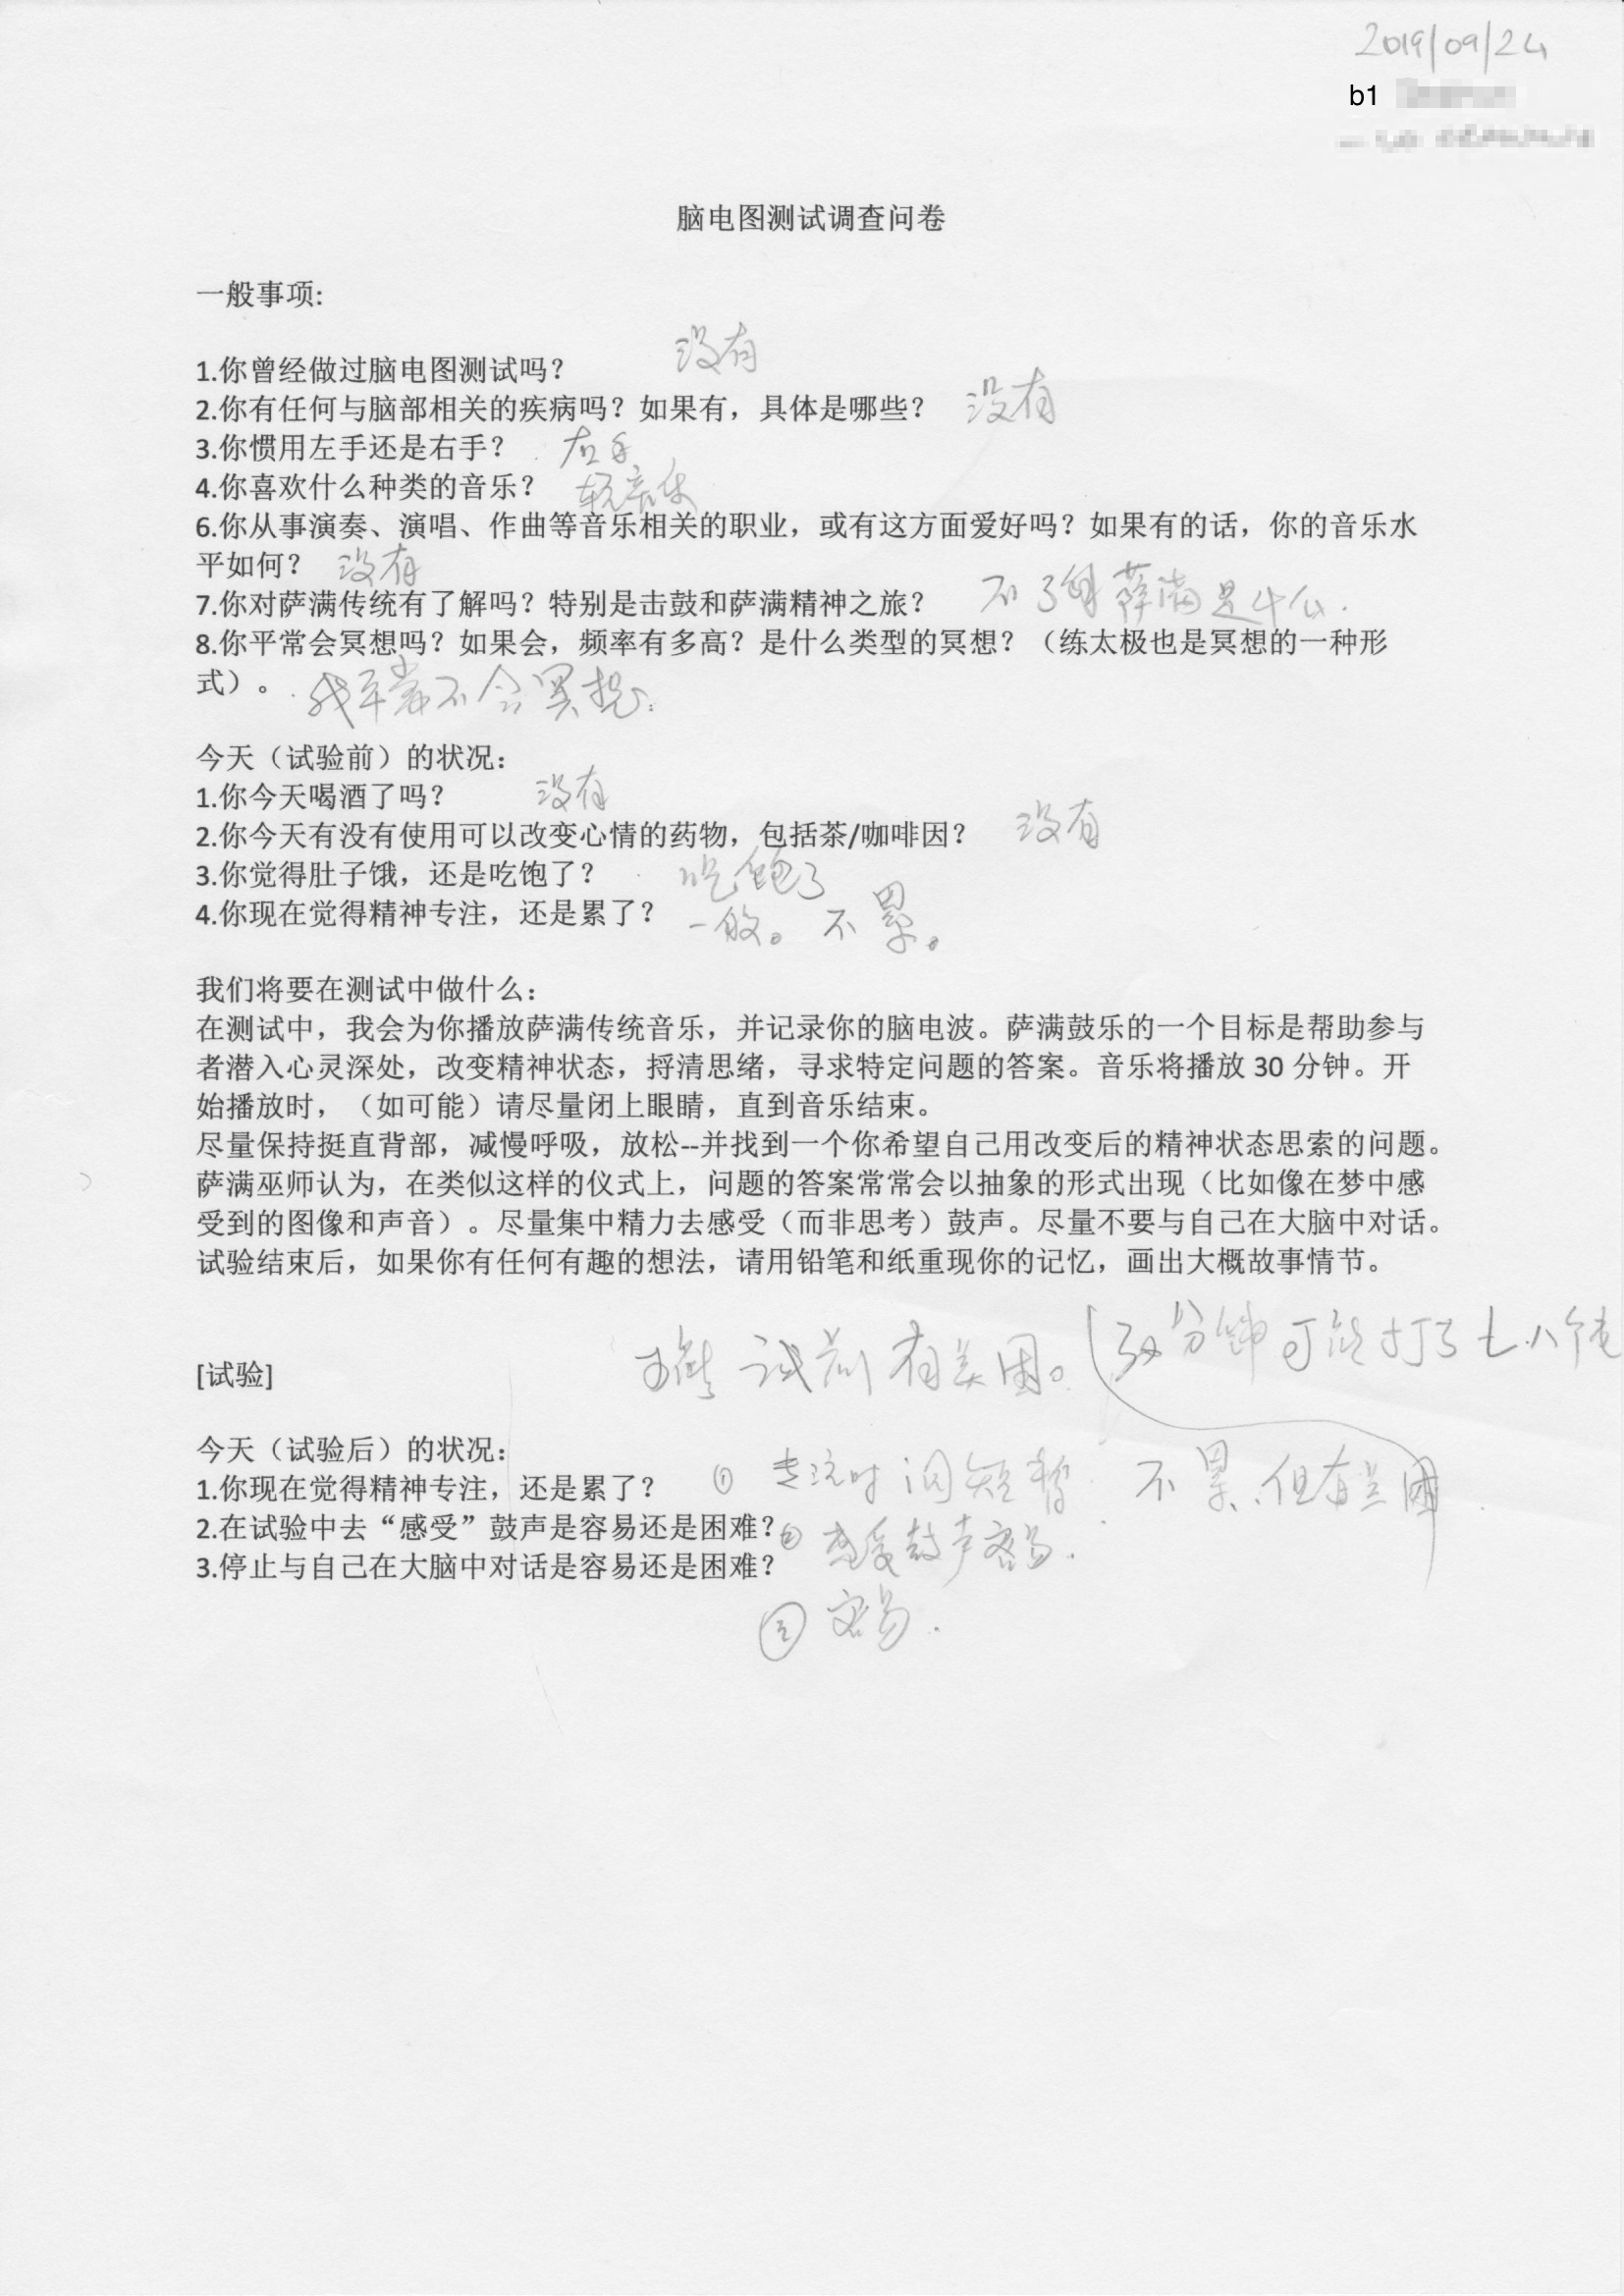 2019/09/24
b1
脑电图测试调查问卷
一般事项:
没有
1.你曾经做过脑电图测试吗？
2.你有任何与脑部相关的疾病吗？如果有，具体是哪些？ 没有
3.你惯用左手还是右手？ 右手
4.你喜欢什么种类的音乐？ 轻音乐
6.你从事演奏、演唱、作曲等音乐相关的职业，或有这方面爱好吗？如果有的话，你的音乐水
平如何？ 没有
7.你对萨满传统有了解吗？特别是击鼓和萨满精神之旅？ 不了解萨满是什么.
8.你平常会冥想吗？如果会，频率有多高？是什么类型的冥想？（练太极也是冥想的一种形
式）。 我平常不会冥想。
今天（试验前）的状况：
1.你今天喝酒了吗？ 没有
2.你今天有没有使用可以改变心情的药物，包括茶/咖啡因？ 没有
3.你觉得肚子饿，还是吃饱了？ 吃饱了
4.你现在觉得精神专注，还是累了？ 一般。不累。
我们将要在测试中做什么：
在测试中，我会为你播放萨满传统音乐，并记录你的脑电波。萨满鼓乐的一个目标是帮助参与
者潜入心灵深处，改变精神状态，捋清思绪，寻求特定问题的答案。音乐将播放 30 分钟。开
始播放时，（如可能）请尽量闭上眼睛，直到音乐结束。
尽量保持挺直背部，减慢呼吸，放松--并找到一个你希望自己用改变后的精神状态思索的问题。
萨满巫师认为，在类似这样的仪式上，问题的答案常常会以抽象的形式出现（比如像在梦中感
受到的图像和声音）。尽量集中精力去感受（而非思考）鼓声。尽量不要与自己在大脑中对话。
试验结束后，如果你有任何有趣的想法，请用铅笔和纸重现你的记忆，画出大概故事情节。
试前有关困。(30分钟可能打了七八个盹
[试验]
今天（试验后）的状况：
1.你现在觉得精神专注，还是累了？ ① 专注时间短暂. 不累，但有些困.
2.在试验中去“感受”鼓声是容易还是困难？ ② 感受鼓声容易.
3.停止与自己在大脑中对话是容易还是困难？
③ 容易.